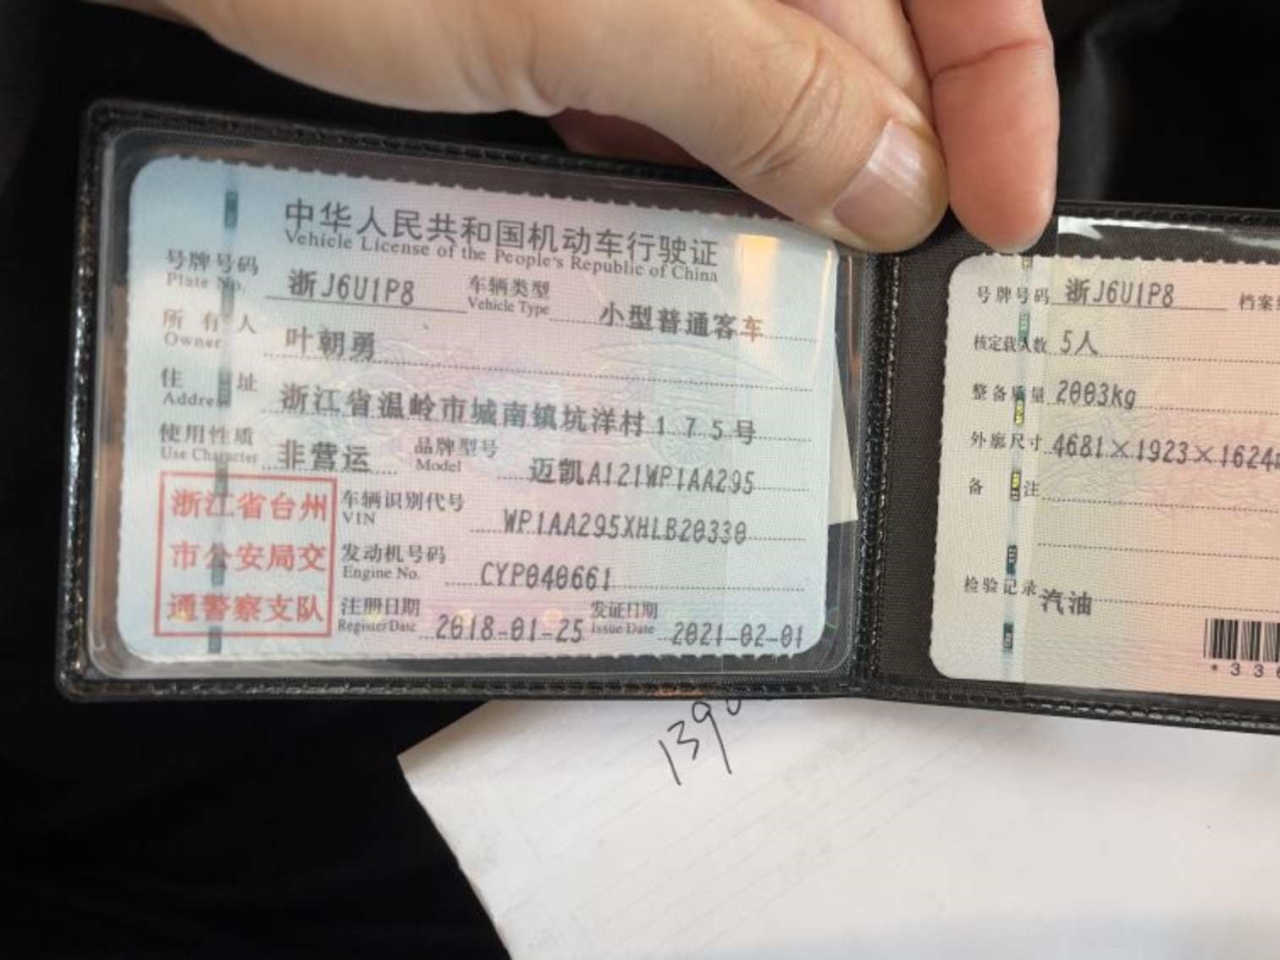 中华人民共和国机动车行驶证
Vehicle License of the People's Republic of China
号牌号码 浙J6U1P8 车辆类型 小型普通客车
Plate No. Vehicle Type
所有人 叶朝勇
Owner
住址 浙江省温岭市城南镇坑洋村175号
Address
使用性质 非营运 品牌型号 迈凯A121WP1AA295
Use Character Model
浙江省台州
市公安局交
通警察支队
车辆识别代号 WP1AA295XHLB20330
VIN
发动机号码 CYP040661
Engine No.
注册日期 2018-01-25 发证日期 2021-02-01
Register Date Issue Date
号牌号码 浙J6U1P8 档案
核定载人数 5人
整备质量 2003kg
外廓尺寸 4681×1923×1624
备注
检验记录 汽油
*336
139